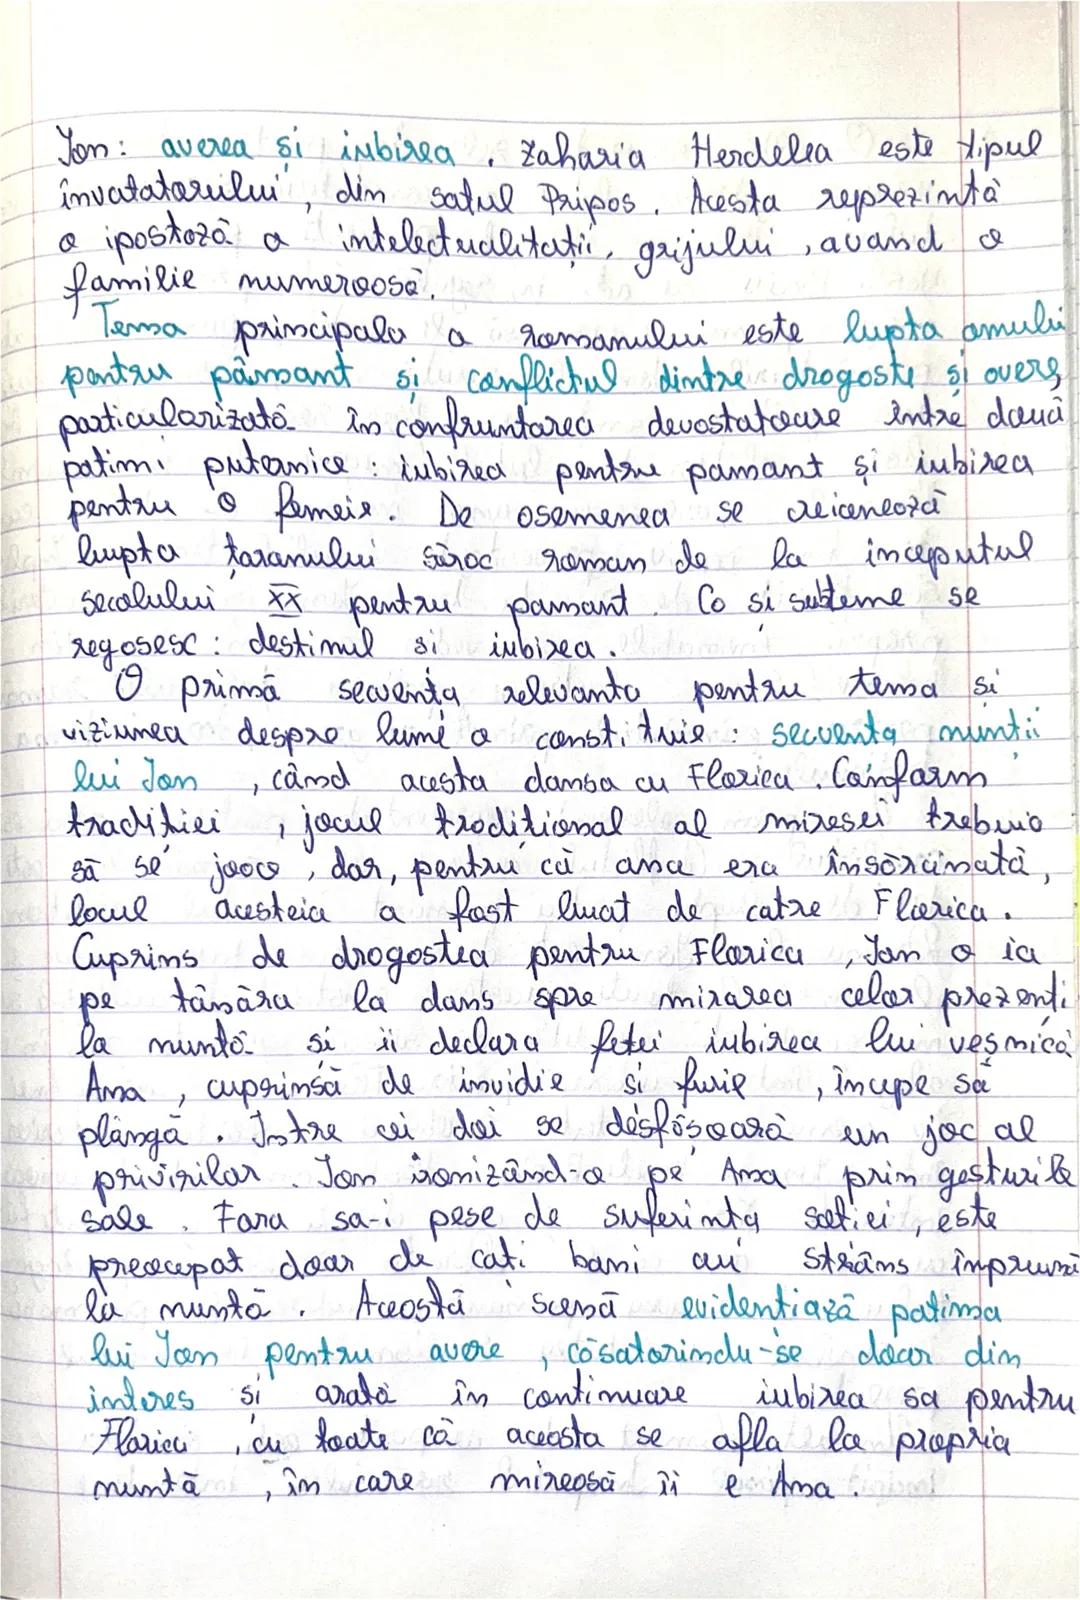 Ion: averea și iubirea. Zaharia Herdelea este tipul
învatatorului, din satul Pripos. Acesta reprezintă
o ipostază a intelectualitatții, grijului, avand o
familie numeroasă.
Tema principala a romanului este lupta omului
pentru pământ și conflictul dintre drogoste și avere,
particularizată în confruntarea devostatoare între două
patimi puternice: iubirea pentru pamant și iubirea
pentru o femeie. De osemenea se
lupta taranului sărac roman de la inceputul
secolului XX pentru pamant. Ca si subteme se
regosesc: destinul si iubirea.
O primă secvența relevanta pentru tema si
viziunea despre lume o constituie: secventa nuntii
lui Ion, când acesta dansa cu Florica. Conform
tradiției, jocul trodițional al miresei trebuia
să se joace, dar, pentru că ana era însărcinată,
locul acesteia a fost luat de catre Florica.
Cuprins de drogostea pentru Florica, Ion o ia
pe tânăra la dans spre mirarea celor prezenti
la nuntă si ii declara fetei iubirea lui veșnică
Ana, cuprinsă de invidie si furie, începe să
plângă. Intre cei doi se desfășoară un joc al
privirilor. Ion ironizând-o pe Ana prin gesturile
sale. Fara sa-i pese de suferinta soției, este
preocupat doar de cati bani au strâns împreună
la nuntă. Această scenă evidentiază patima
lui Ion pentru avere, căsatorindu-se doar din
interes si arată în continuare iubirea sa pentru
Florica, cu toate că aceasta se afla la propria
nuntă, în care mireasă îi e Ana.